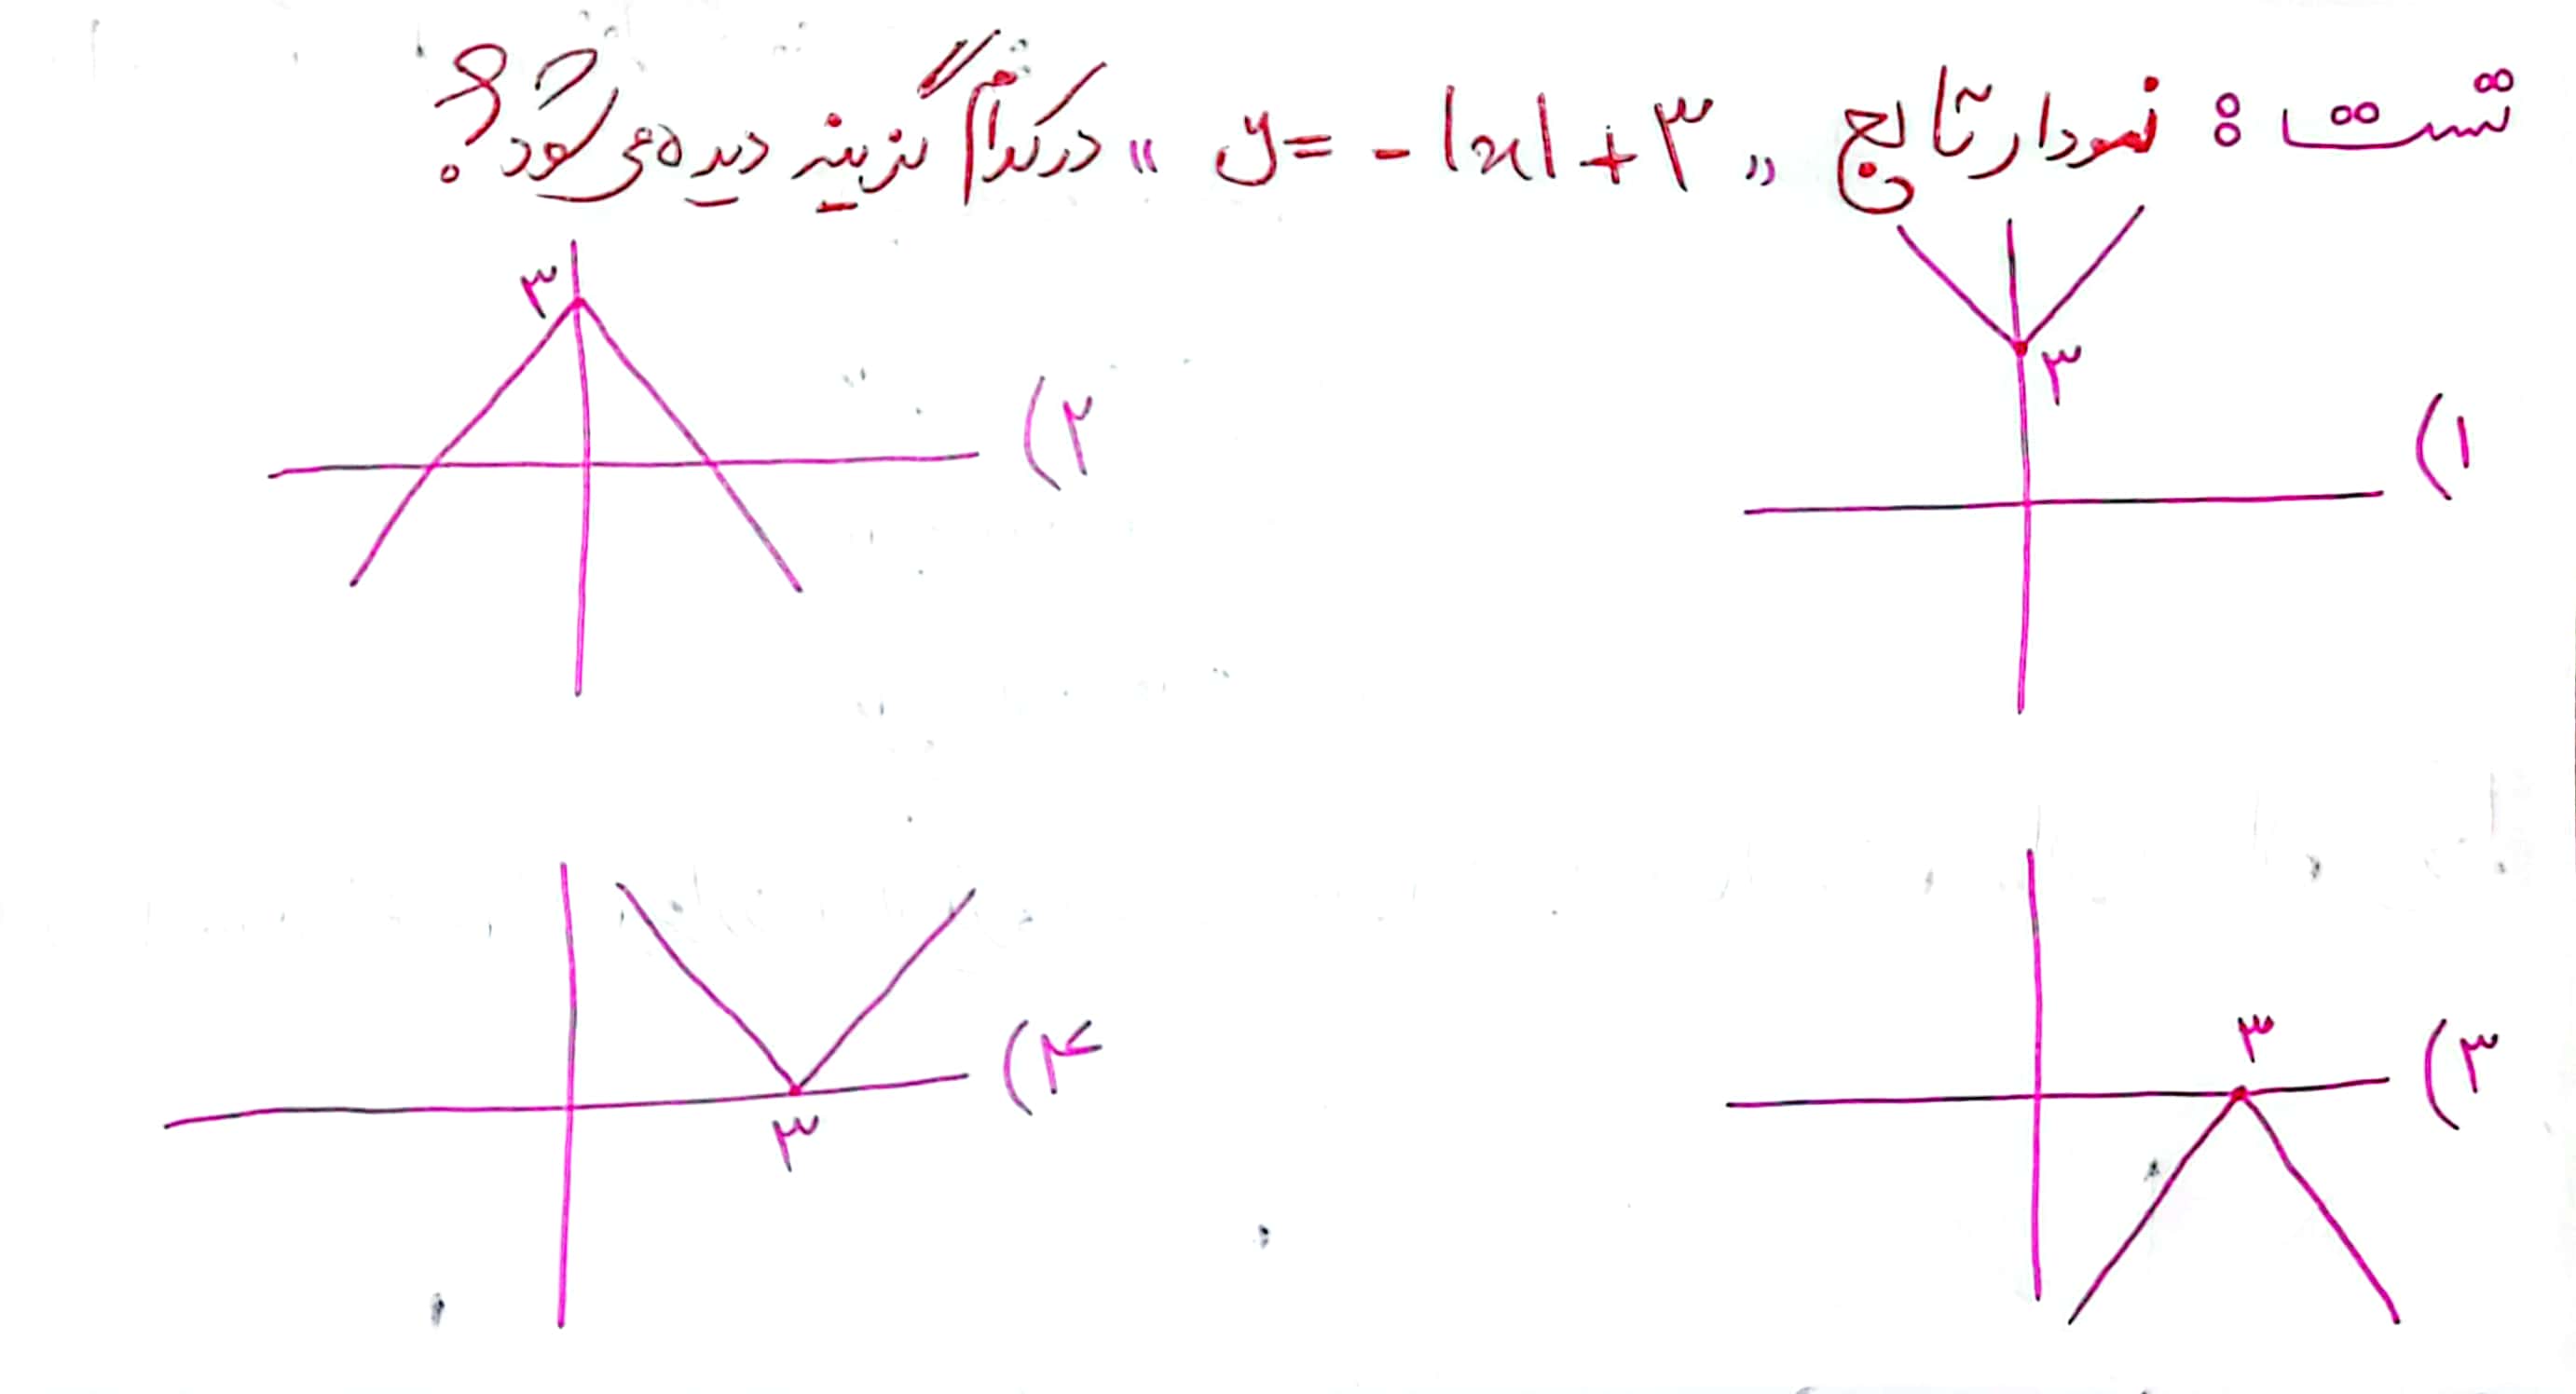 تست : نمودار تابع „ y = - |x| + ۳ " در کدام گزینه دیده می شود ؟
۳
۳
۱)
۲)
۳
۳)
۴)
۳